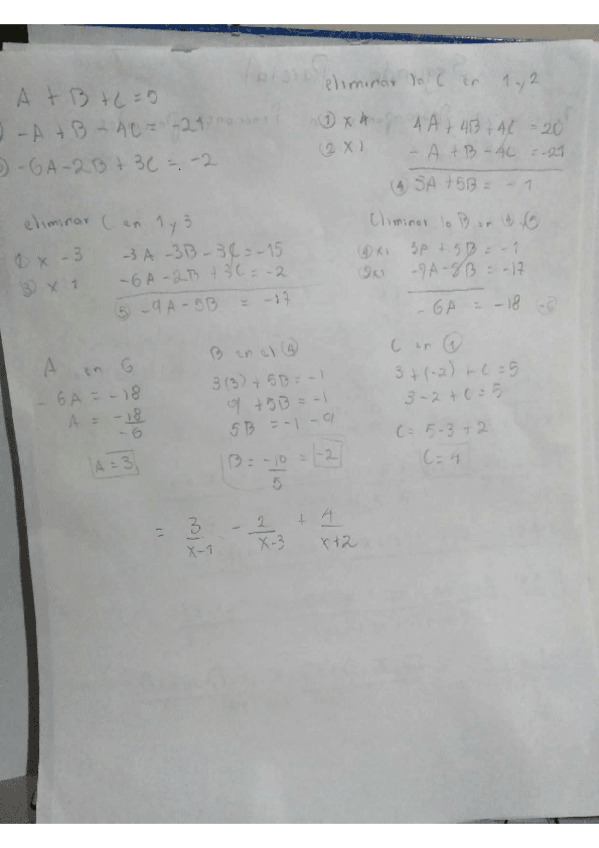 A + B + C = 5
-A + B - 4C = -21
-6A - 2B + 3C = -2
eliminar lo C en 1 y 2
① x 4 4A + 4B + 4C = 20
② x 1 -A + B - 4C = -21
④ 3A + 5B = -1
eliminar C en 1 y 3
① x -3 -3A -3B - 3C = -15
③ x 1 -6A - 2B + 3C = -2
⑤ -9A - 5B = -17
Eliminar lo B en ④ y ⑤
④x1 3A + 5B = -1
⑤x1 -9A - 5B = -17
-6A = -18
A en 6
-6A = -18
A = -18/-6
A = 3
B en el ④
3(3) + 5B = -1
9 + 5B = -1
5B = -1 - 9
B = -10/5 = -2
C en ①
3 + (-2) + C = 5
3 - 2 + C = 5
C = 5 - 3 + 2
C = 4
= 3/x-1 - 2/x-3 + 4/x+2